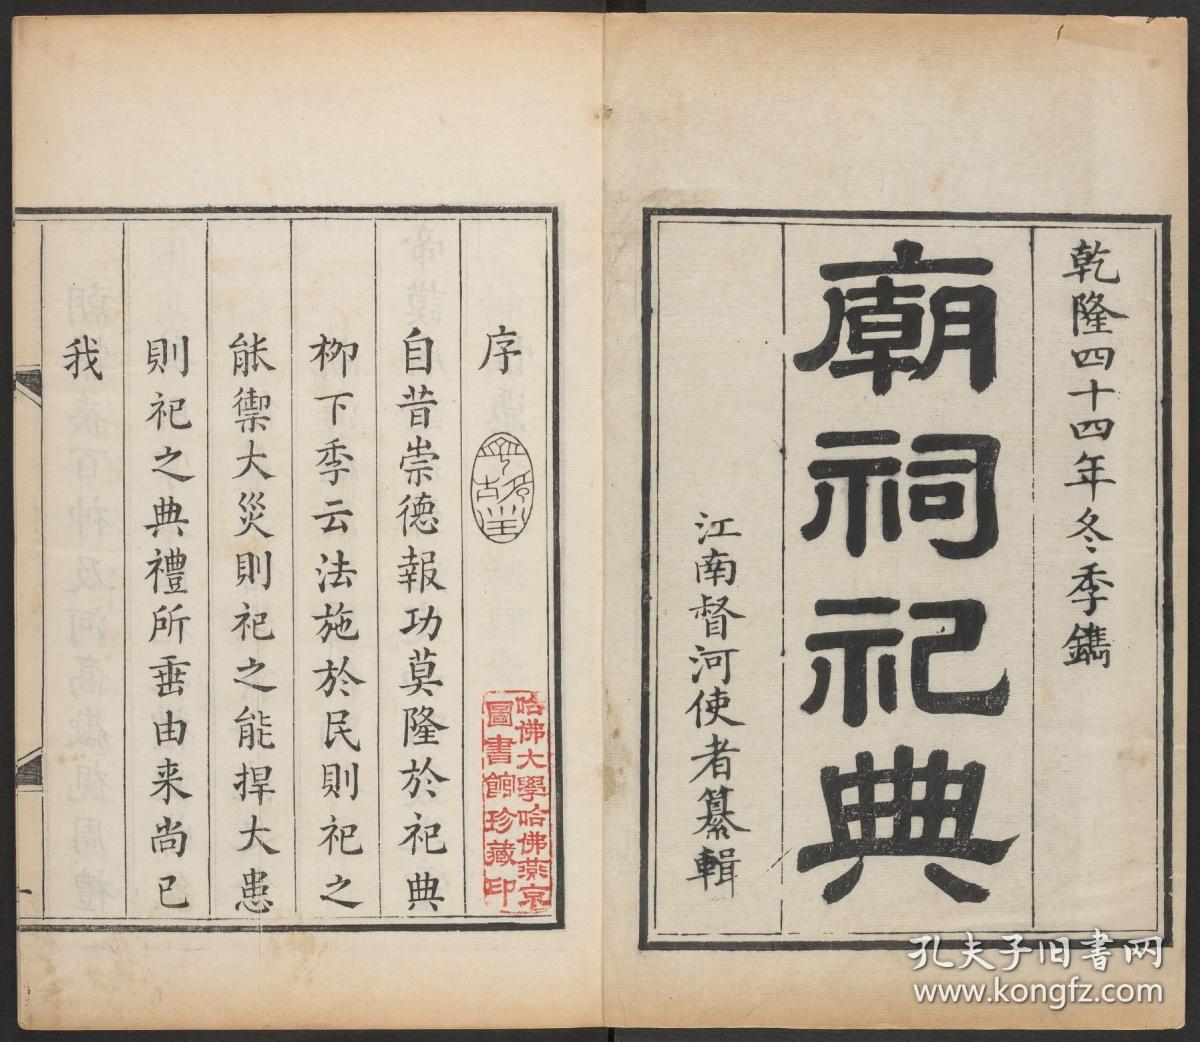 乾隆四十四年冬季鐫
廟祠祀典
江南督河使者纂輯
序
哈佛大學哈佛燕京
圖書館珍藏印
自昔崇德報功莫隆於祀典
柳下季云法施於民則祀之
能禦大災則祀之能捍大患
則祀之典禮所垂由来尚已
我
孔夫子旧书网
www.kongfz.com